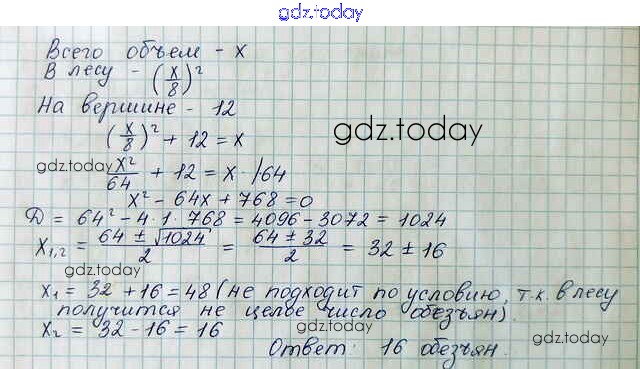 gdz.today
Всего объем - x
В лесу - (x/8)²
На вершине - 12
(x/8)² + 12 = x
gdz.today
gdz.today
x²/64 + 12 = x · /64
x² - 64x + 768 = 0
Д = 64² - 4 · 1 · 768 = 4096 - 3072 = 1024
x₁,₂ = (64 ± √1024)/2 = (64 ± 32)/2 = 32 ± 16
gdz.today
x₁ = 32 + 16 = 48 (не подходит по условию, т.к. в лесу
получится не целое число обезъян).
x₂ = 32 - 16 = 16
gdz.today
gdz.today
Ответ: 16 обезъян.